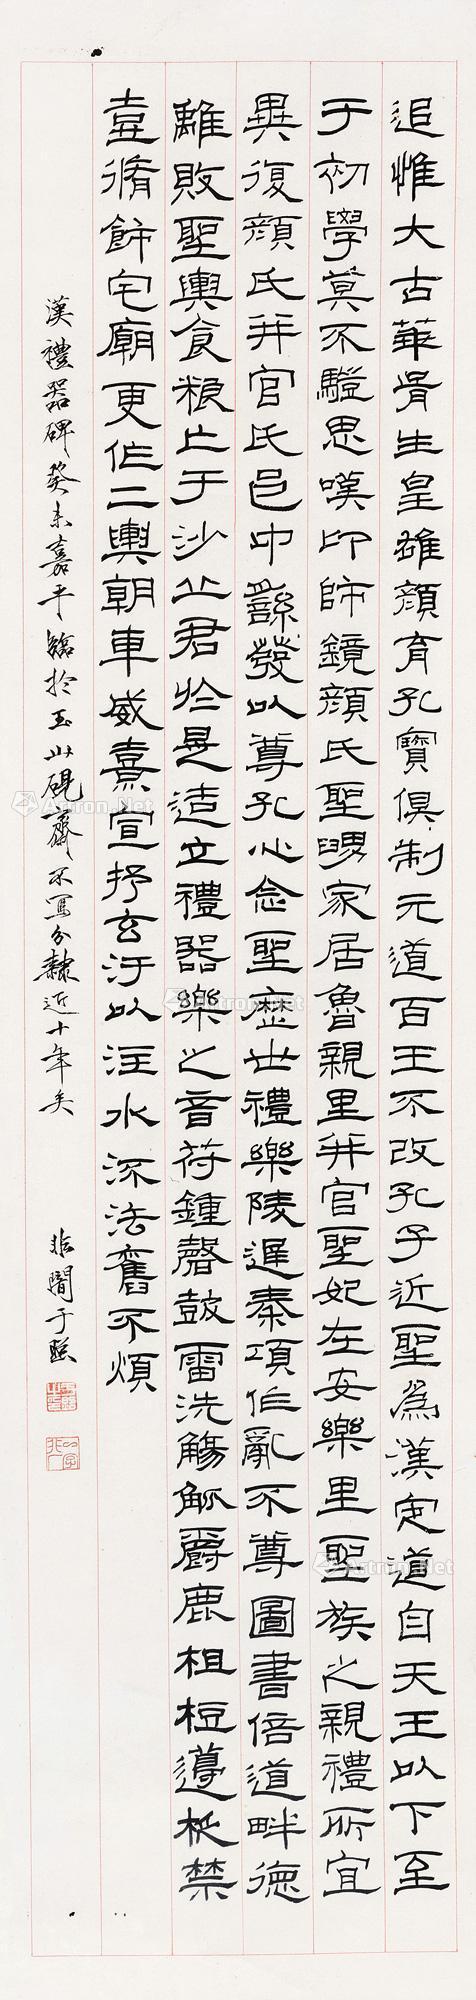 追惟大古華胥生皇雄顏育孔寶俱制元道百王不改孔子近聖為漢定道自天王以下至
于初學莫不驥思嘆卬師鏡顏氏聖舅家居魯親里并官聖妃在安樂里聖族之親禮所宜
異復顏氏并官氏邑中繇發以尊孔心念聖歷世禮樂陵遲秦項作亂不尊圖書倍道畔德
離敗聖輿食粮亡于沙丘君於是造立禮器樂之音符鍾磬鼓雷洗觴觚爵鹿柤梪籩柉禁
壺脩飾宅廟更作二輿朝車威熹宣抒玄汙以注水流法舊不煩
漢禮器碑癸未嘉平臨於玉山硯齋不寫分隸近十年矣
非闇于照
Artron.Net
Artron.Net
Artron.Net
Artron.Net